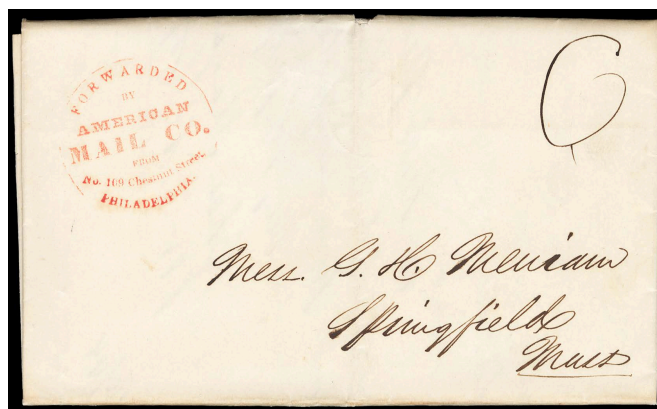 FORWARDED
BY
AMERICAN
MAIL CO.
FROM
No. 109 Chesnut Street
PHILADELPHIA.
6
Mess. G. H. Merriam
Springfield
Mass